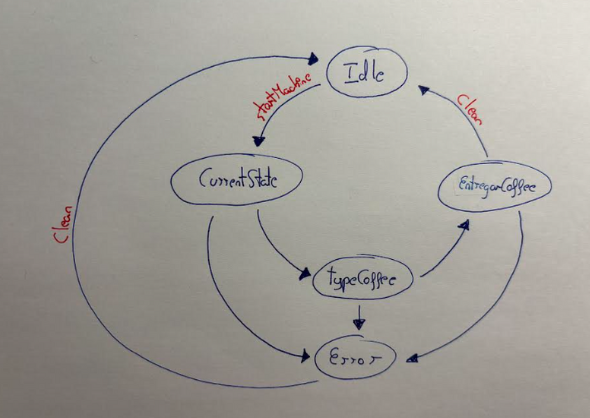 Idle
startMachine
Clean
CurrentState
EntregarCoffee
Clean
typeCoffee
Error